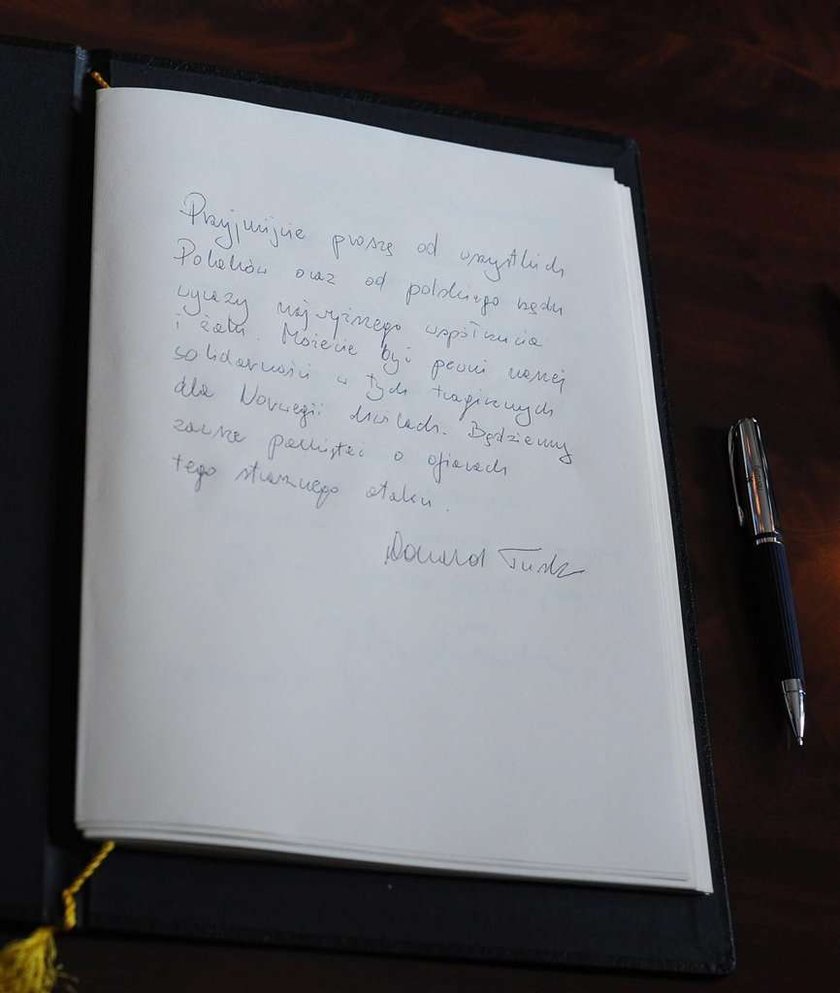 Przyjmijcie proszę od wszystkich
Polaków oraz od polskiego rządu
wyrazy najwyższego współczucia
i żalu. Możecie być pewni naszej
solidarności w tych tragicznych
dla Norwegii chwilach. Będziemy
zawsze pamiętać o ofiarach
tego strasznego ataku.
Donald Tusk